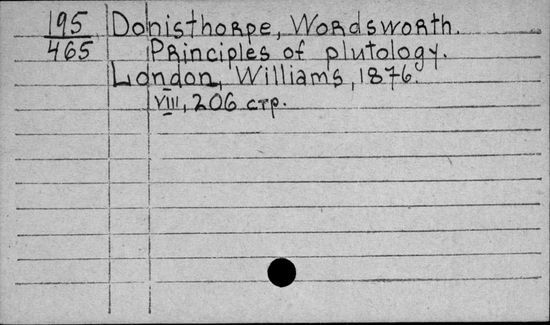 195 Donisthorpe, Wordsworth.
465 Principles of plutology.
London, Williams, 1876.
VIII, 206 стр.